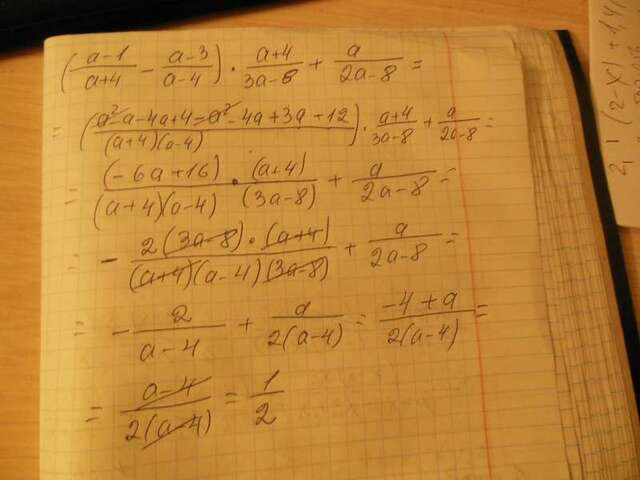 ( (a-1)/(a+4) - (a-3)/(a-4) ) · (a+4)/(3a-8) + a/(2a-8) =
= ( (a²-a-4a+4=a²-4a+3a+12)/((a+4)(a-4)) ) · (a+4)/(3a-8) + a/(2a-8) =
= (-6a+16)/((a+4)(a-4)) · (a+4)/(3a-8) + a/(2a-8) =
= - (2(3a-8)·(a+4))/((a+4)(a-4)(3a-8)) + a/(2a-8) =
= - 2/(a-4) + a/(2(a-4)) = (-4+a)/(2(a-4)) =
= (a-4)/(2(a-4)) = 1/2
(2-x)